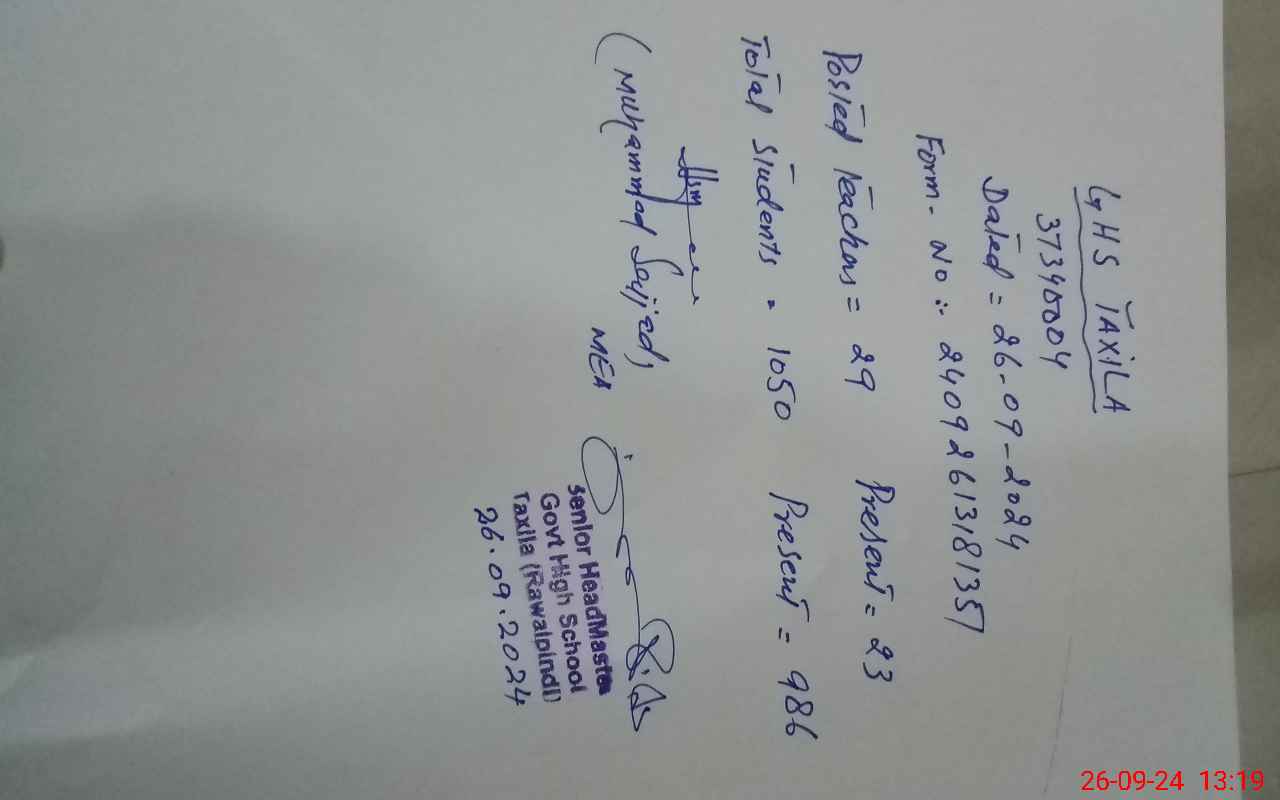 GHS TAXILA
37340004
Dated = 26-09-2024
Form. No :- 24092613181351
Posted teachers = 29 Present = 23
Total Students = 1050 Present = 986
(Muhammad Sajjad)
MEA
Senior HeadMaster
Govt High School
Taxila (Rawalpindi)
26.09.2024
26-09-24 13:19